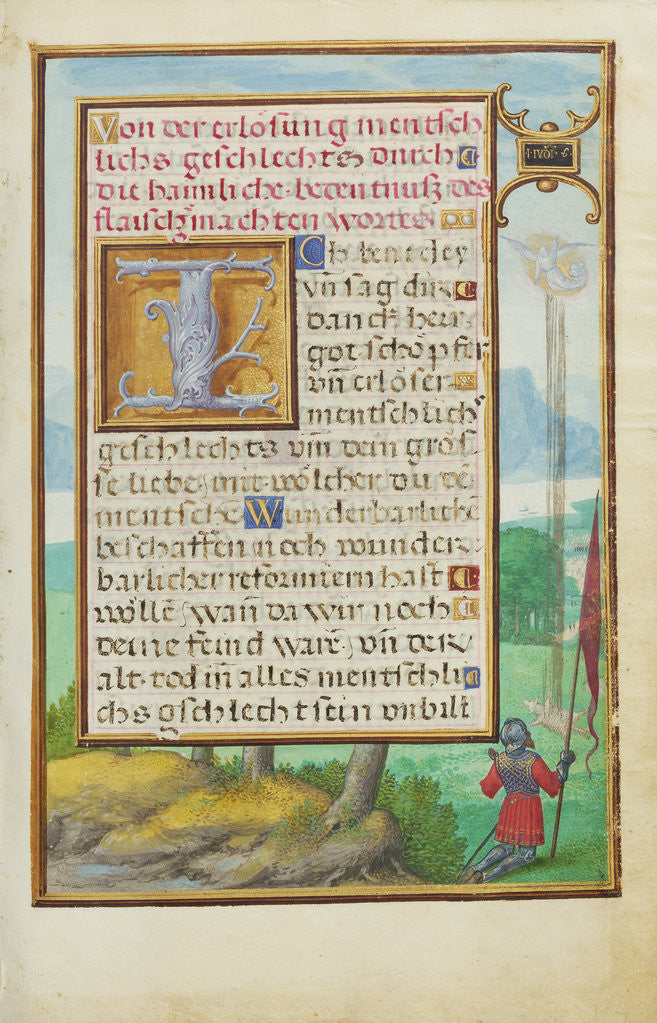 Von der erlösung mentsch
lichs geschlechts durch
die haimliche bedeutnusz des
flaischgmachten wortes
I Ch benedey
vn̄ sag dir
danck herr
got schöpfer
vn̄ erlöser
mentschlich
geschlechts vm̄ dein gros
se liebe mit wölcher du dē
mentschē Wunderbarlichē
beschaffen noch wunder
barlicher reformiern hast
wöllē wan̄ da wir noch
deine feind warē vn̄ der
alt tod in̄ alles mentschli
chs gschlecht sein vnbilt